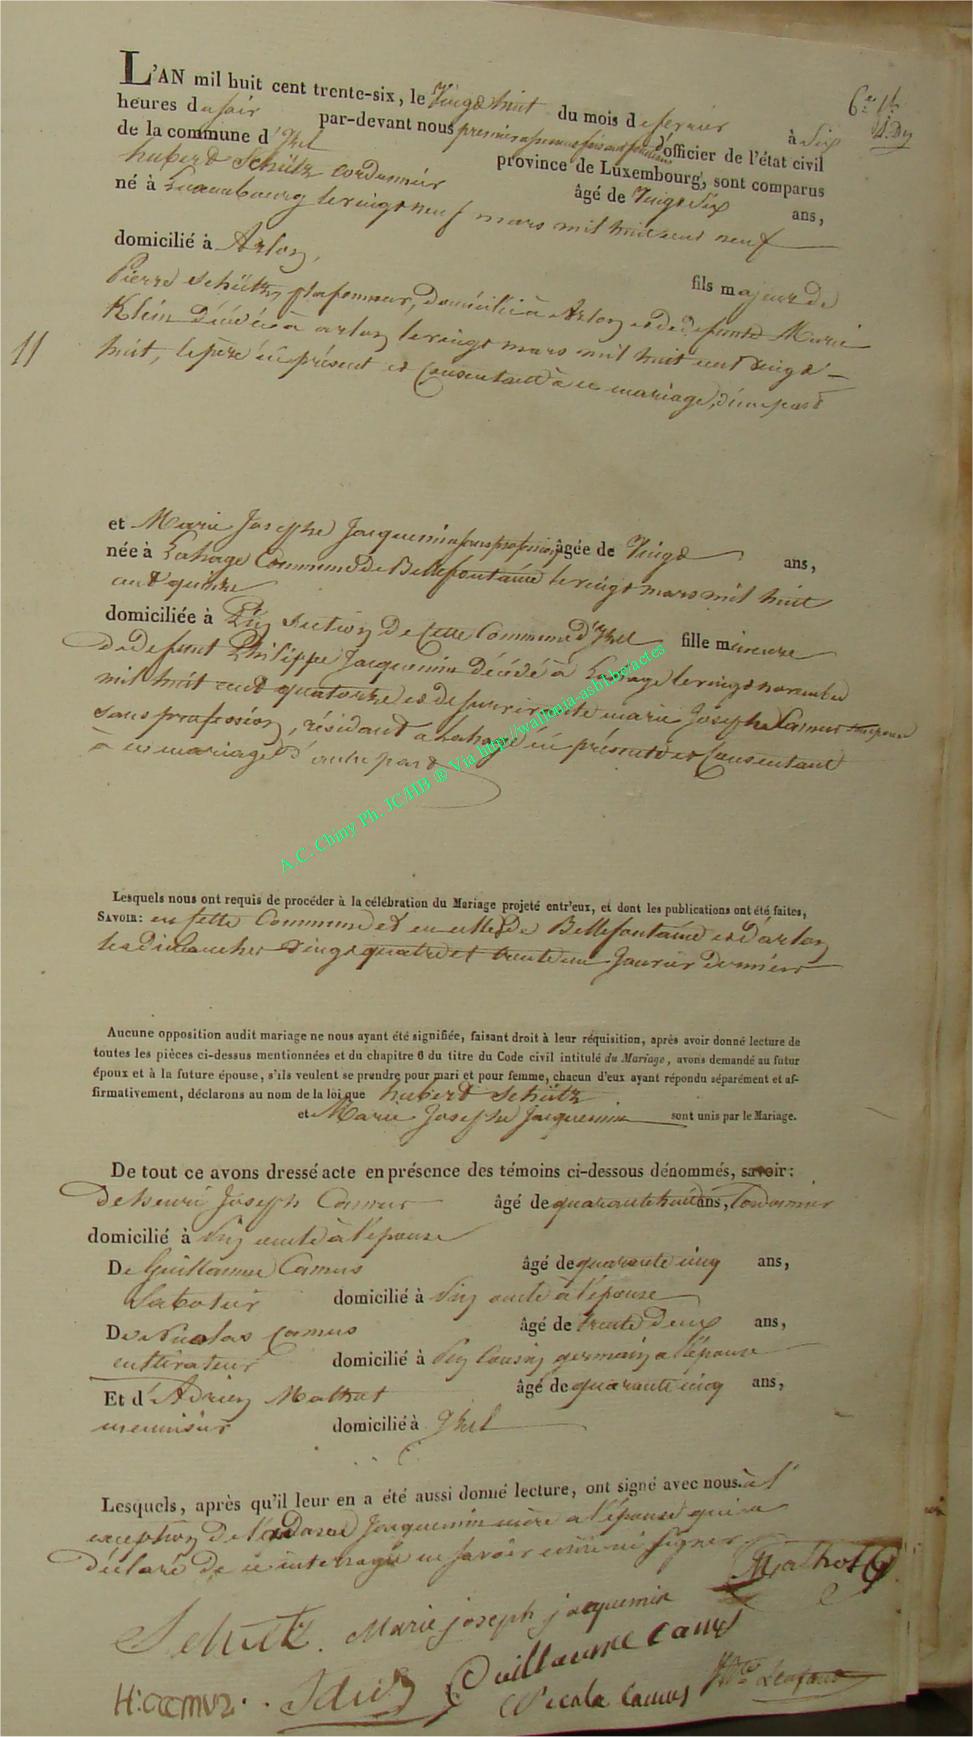 L'AN mil huit cent trente-six, le Vingt huit du mois de fevrier à Six
heures du soir par-devant nous officier de l'état civil
de la commune d'Izel province de Luxembourg, sont comparus
hubert Schütz cordonnier âgé de Vingt Six ans,
né à Luxembourg le vingt neuf mars mil huit cent neuf
domicilié à Arlon, fils majeur de
Pierre Schütz, plafonneur, domicilié à Arlon et de defunte Marie
Klein décédée à arlon le vingt mars mil huit cent vingt-
11
huit, le père ici présent et Consentant à ce mariage, d'une part
et Marie Josephe Jacquemin sans profession âgée de Vingt ans,
née à Lahage Commune de Bellefontaine le vingt mars mil huit
cent quinze
domiciliée à Pin Section de Cette Commune d'Izel fille mineure
de defunt Philippe Jacquemin décédé à Lahage le vingt novembre
mil huit cent quatorze et de survivante marie Josephe Camus
sans profession, résidant à Lahage ici présente et Consentant
à ce mariage d'autre part
A.C. Chiny Ph. JC/HB ® Via http://wallonia-asbl.be/actes
Lesquels nous ont requis de procéder à la célébration du Mariage projeté entr'eux, et dont les publications ont été faites,
SAVOIR: en cette Commune et en celle de Bellefontaine et d'arlon
les dimanches vingt quatre et trente un Janvier dernier
Aucune opposition audit mariage ne nous ayant été signifiée, faisant droit à leur réquisition, après avoir donné lecture de
toutes les pièces ci-dessus mentionnées et du chapitre 6 du titre du Code civil intitulé du Mariage, avons demandé au futur
époux et à la future épouse, s'ils veulent se prendre pour mari et pour femme, chacun d'eux ayant répondu séparément et af-
firmativement, déclarons au nom de la loi que hubert Schütz
et Marie Josephe Jacquemin sont unis par le Mariage.
De tout ce avons dressé acte en présence des témoins ci-dessous dénommés, savoir:
De henri Joseph Camus âgé de quarante huit ans, Cordonnier
domicilié à Pin oncle à l'épouse
De Guillaume Camus âgé de quarante cinq ans,
Saboteur domicilié à Pin oncle à l'épouse
De Nicolas Camus âgé de trente deux ans,
cultivateur domicilié à Pin Cousin germain a l'épouse
Et d'Adrien Mathot âgé de quarante cinq ans,
menuisier domicilié à Izel
Lesquels, après qu'il leur en a été aussi donné lecture, ont signé avec nous à l'
exception de la Jacquemin mère a l'épouse qui a
déclaré de ce interragée ne savoir écrire ni signer
Mathot
Schutz. Marie joseph jacquemin
Guillaume Camus
H:camus. Nicola Camus